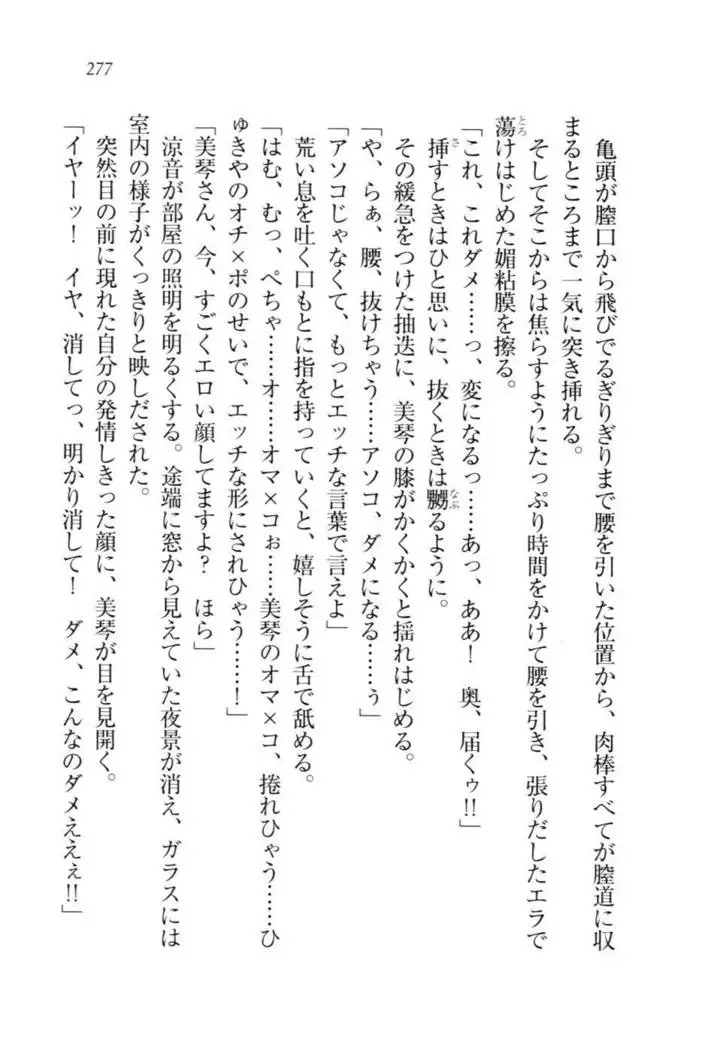 277
亀頭が膣口から飛びでるぎりぎりまで腰を引いた位置から、肉棒すべてが膣道に収
まるところまで一気に突き挿れる。
そしてそこからは焦らすようにたっぷり時間をかけて腰を引き、張りだしたエラで
蕩けはじめた媚粘膜を擦る。
「これ、これダメ……っ、変になるっ……あっ、ああ！　奥、届くゥ!!」
挿すときはひと思いに、抜くときは嬲るように。
その緩急をつけた抽迭に、美琴の膝がかくかくと揺れはじめる。
「や、らぁ、腰、抜けちゃう……アソコ、ダメになる……ぅ」
「アソコじゃなくて、もっとエッチな言葉で言えよ」
荒い息を吐く口もとに指を持っていくと、嬉しそうに舌で舐める。
「はむ、むっ、ぺちゃ……オ……オマ×コぉ……美琴のオマ×コ、捲れひゃう……ひ
ゅきやのオチ×ポのせいで、エッチな形にされひゃう……！」
「美琴さん、今、すごくエロい顔してますよ？　ほら」
涼音が部屋の照明を明るくする。途端に窓から見えていた夜景が消え、ガラスには
室内の様子がくっきりと映しだされた。
突然目の前に現れた自分の発情しきった顔に、美琴が目を見開く。
「イヤーッ！　イヤ、消してっ、明かり消して！　ダメ、こんなのダメええぇ!!」